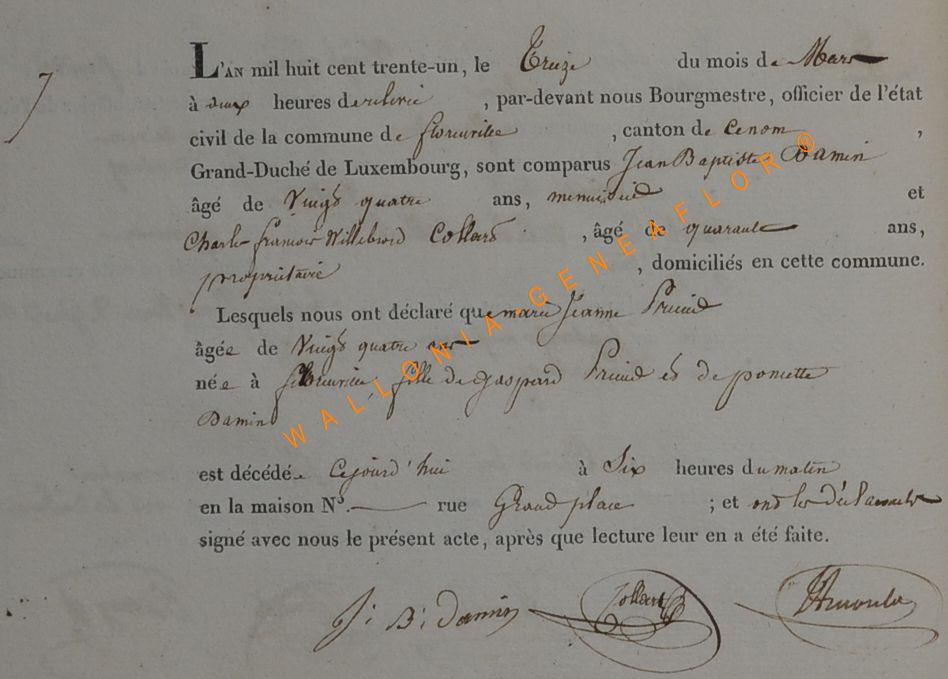 7
L'AN mil huit cent trente-un, le Treize du mois de Mars
à deux heures de relevée, par-devant nous Bourgmestre, officier de l'état
civil de la commune de florenville, canton de
Grand-Duché de Luxembourg, sont comparus Jean Baptiste Damin
âgé de Vingt quatre ans, menuisier et
Charles françois Willebrord Collard, âgé de quarante ans,
propriétaire, domiciliés en cette commune.
Lesquels nous ont déclaré que marie Jeanne
âgée de Vingt quatre ans
née à florenville, fille de gaspard et de poncette
Damin
est décédée Cejourd'hui à Six heures du matin
en la maison N°. — rue Grand place ; et ont les déclarants
signé avec nous le présent acte, après que lecture leur en a été faite.
J: B: Damin Collard
WALLONIA-GENEAFLOR ©